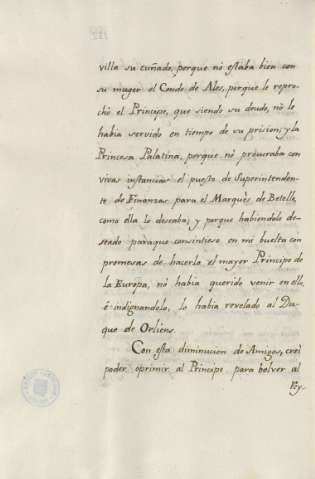 villa su cuñado, porque no estaba bien con
su muger el Conde de Ales, porque le repro-
chó el Principe, que siendo su deudo, no le
habia servido en tiempo de su prision; y la
Princesa Palatina, porque no procuraba con
vivas instancias el puesto de Superintenden-
te de Finanzas para el Marquès de Betelle,
como ella lo deseaba; y porque habiendole de-
seado paraque consintiese en mi buelta con
promesas de hacerle el mayor Principe de
la Europa, no habia querido venir en ello,
è indignandolo, lo habia revelado al Du-
que de Orliens.
Con esta diminucion de Amigos, creì
poder oprimir al Principe para bolver al
Rey.